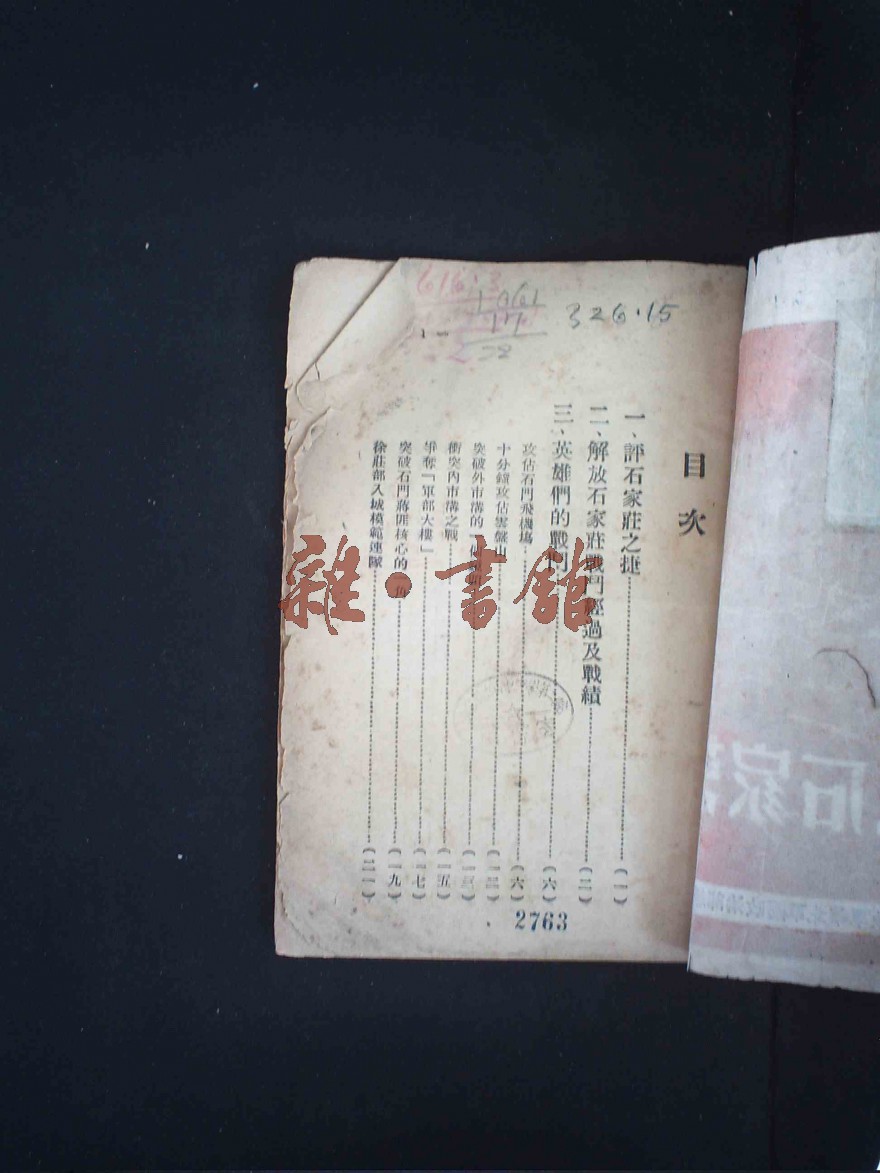 616.3
326.15
目次
一、評石家莊之捷（一）
二、解放石家莊戰鬥經過及戰績（二）
三、英雄們的戰鬥（六）
攻佔石門飛機場（六）
十分鐘攻佔雲盤山（一二）
突破外市溝的（一三）
衝突內市溝之戰（一五）
爭奪「軍部大樓」（一七）
突破石門蔣匪核心的一角（一九）
徐莊部入城模範連隊（二一）
2763
雜·書館
石家